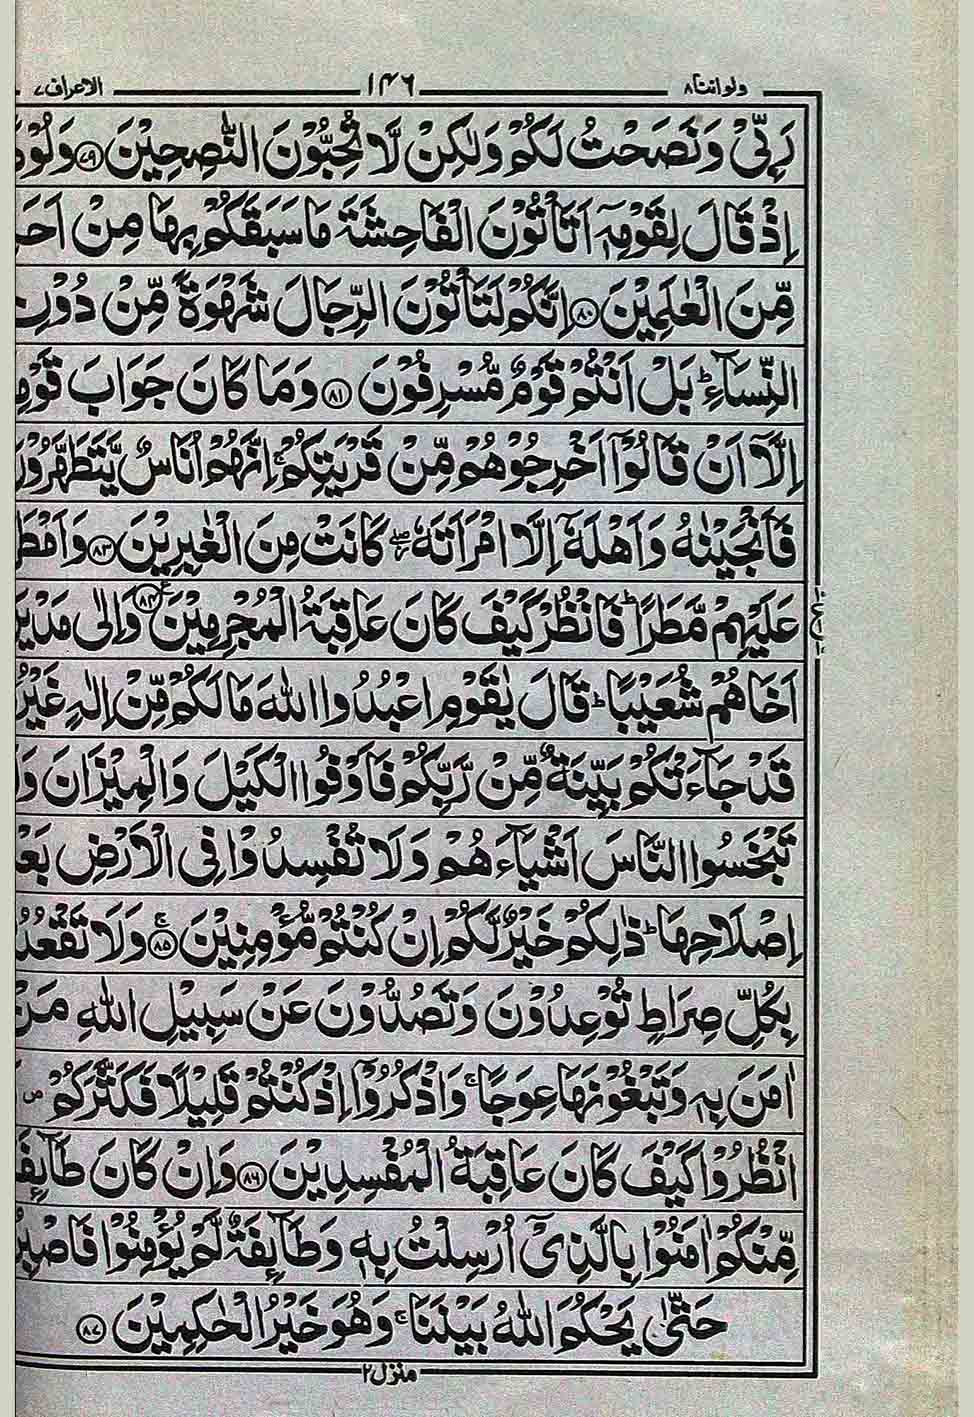 ولواننا ٨ ١٤٦ الاعراف ٧
رَبِّیْ وَنَصَحْتُ لَكُمْ وَلٰكِنْ لَّا تُحِبُّوْنَ النّٰصِحِیْنَ ﴿٧٩﴾
اِذْ قَالَ لِقَوْمِهٖۤ اَتَاْتُوْنَ الْفَاحِشَةَ مَا سَبَقَكُمْ بِهَا مِنْ
مِّنَ الْعٰلَمِیْنَ ﴿٨٠﴾ اِنَّكُمْ لَتَاْتُوْنَ الرِّجَالَ شَهْوَةً مِّنْ دُوْنِ
النِّسَآءِ ؕ بَلْ اَنْتُمْ قَوْمٌ مُّسْرِفُوْنَ ﴿٨١﴾ وَمَا كَانَ جَوَابَ
اِلَّاۤ اَنْ قَالُوْۤا اَخْرِجُوْهُمْ مِّنْ قَرْیَتِكُمْ ۚ اِنَّهُمْ اُنَاسٌ
فَاَنْجَیْنٰهُ وَاَهْلَهٗۤ اِلَّا امْرَاَتَهٗ ۖؗ كَانَتْ مِنَ الْغٰبِرِیْنَ ﴿٨٣﴾
عَلَیْهِمْ مَّطَرًا ؕ فَانْظُرْ كَیْفَ كَانَ عَاقِبَةُ الْمُجْرِمِیْنَ ﴿٨٤﴾ وَاِلٰی مَدْیَنَ
اَخَاهُمْ شُعَیْبًا ؕ قَالَ یٰقَوْمِ اعْبُدُوا اللّٰهَ مَا لَكُمْ مِّنْ اِلٰهٍ
قَدْ جَآءَتْكُمْ بَیِّنَةٌ مِّنْ رَّبِّكُمْ فَاَوْفُوا الْكَیْلَ وَالْمِیْزَانَ
تَبْخَسُوا النَّاسَ اَشْیَآءَهُمْ وَلَا تُفْسِدُوْا فِی الْاَرْضِ
اِصْلَاحِهَا ؕ ذٰلِكُمْ خَیْرٌ لَّكُمْ اِنْ كُنْتُمْ مُّؤْمِنِیْنَ ﴿٨٥﴾ وَلَا
بِكُلِّ صِرَاطٍ تُوْعِدُوْنَ وَتَصُدُّوْنَ عَنْ سَبِیْلِ اللّٰهِ مَنْ
اٰمَنَ بِهٖ وَتَبْغُوْنَهَا عِوَجًا ۚ وَاذْكُرُوْۤا اِذْ كُنْتُمْ قَلِیْلًا فَكَثَّرَكُمْ ۪
انْظُرُوْا كَیْفَ كَانَ عَاقِبَةُ الْمُفْسِدِیْنَ ﴿٨٦﴾ وَاِنْ كَانَ
مِّنْكُمْ اٰمَنُوْا بِالَّذِیْۤ اُرْسِلْتُ بِهٖ وَطَآئِفَةٌ لَّمْ یُؤْمِنُوْا
حَتّٰی یَحْكُمَ اللّٰهُ بَیْنَنَا ۚ وَهُوَ خَیْرُ الْحٰكِمِیْنَ ﴿٨٧﴾
منزل ٢